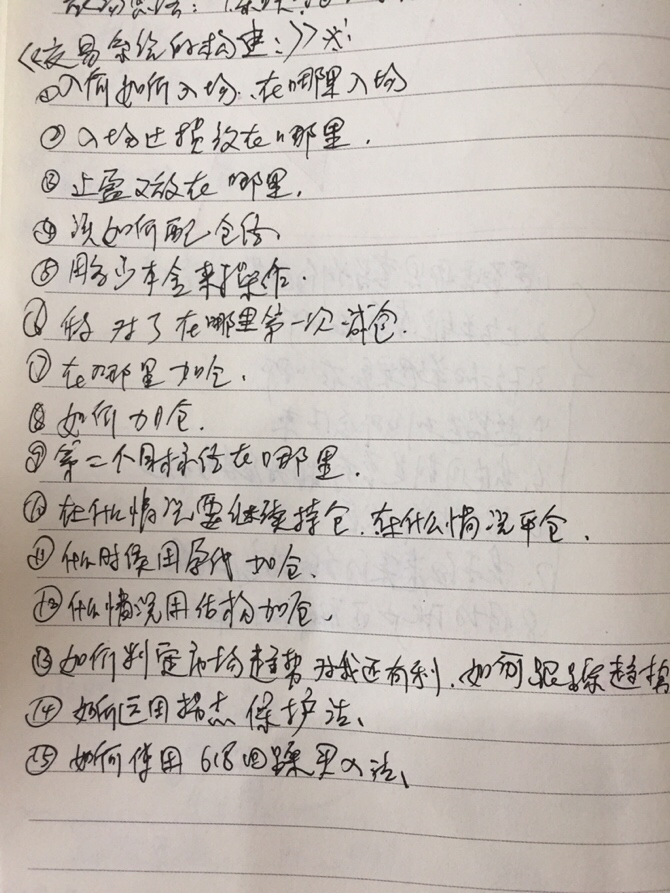 《交易系统的构建:》※:
①入何如何入场、在哪里入场
②入场止损放在哪里.
③止盈又放在哪里.
④该如何配仓位、
⑤用多少本金来操作.
⑥ 对了在哪里第一次减仓.
⑦在哪里加仓.
⑧如何加仓.
⑨第二个目标位在哪里.
⑩在什么情况要继续持仓.在什么情况平仓.
⑪什么时候用 加仓、
⑫什么情况用结构加仓.
⑬如何判定市场趋势对我还有利.如何跟踪趋势
⑭如何运用拐点保护法、
⑮如何使用618回踩买入法、